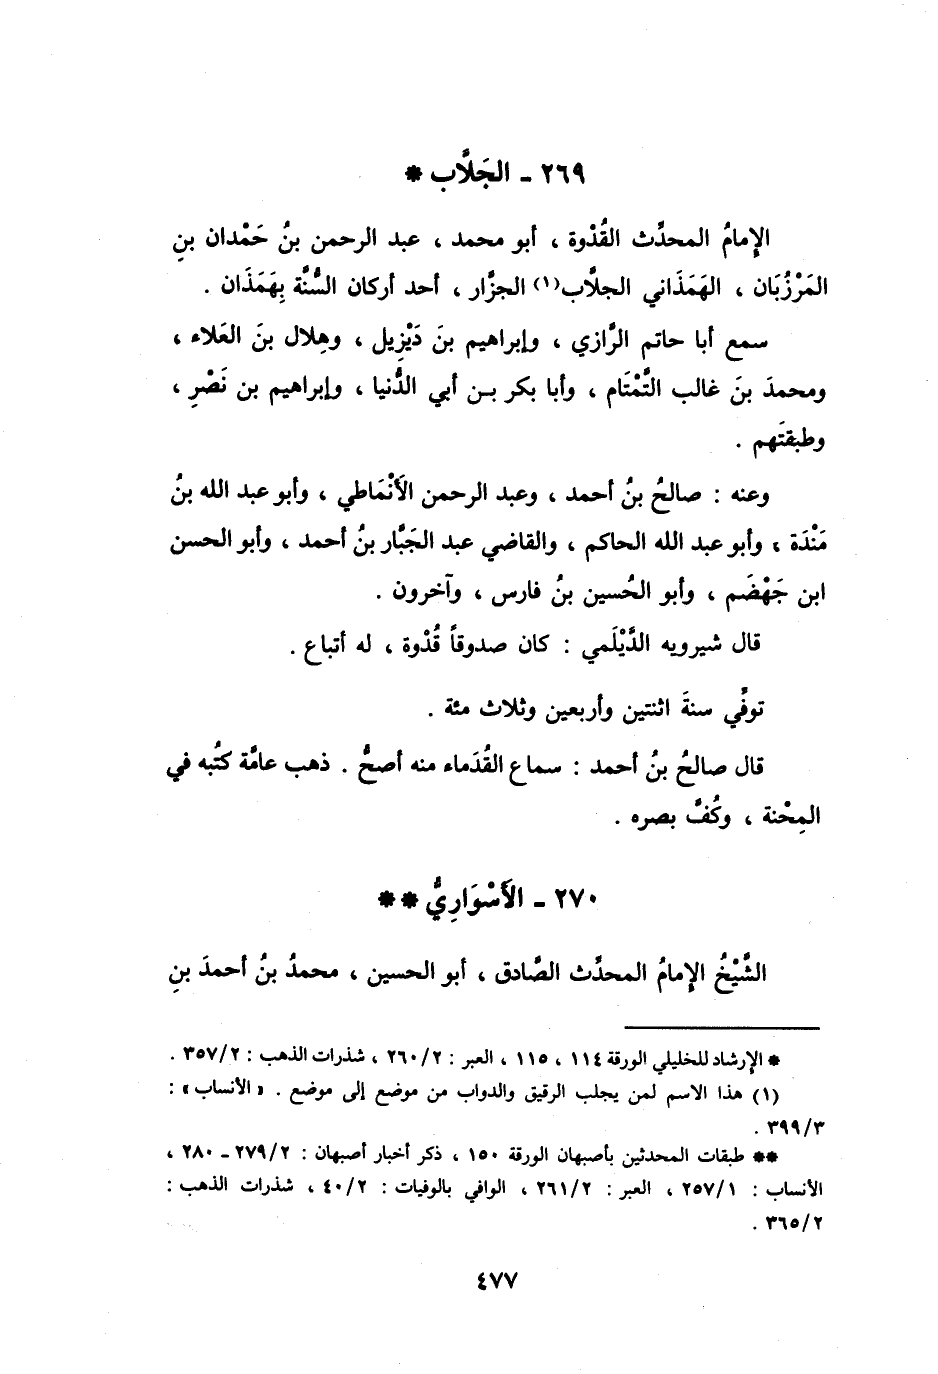 ٢٦٩ - الجَلاَّب *
الإِمامُ المحدِّث القُدْوة ، أبو محمد ، عبد الرحمن بنُ حَمْدان بنِ
المَرْزُبَان ، الهَمَذَاني الجلاَّب(١) الجزَّار ، أحد أركان السُّنَّة بِهَمَذَان .
سمع أبا حاتم الرَّازي ، وإبراهيم بنَ دَيْزِيل ، وهِلال بنَ العَلاء ،
ومحمدَ بنَ غالب التَّمْتَام ، وأبا بكر بـن أبي الدُّنيا ، وإبراهيم بن نَصْرٍ ،
وطبقتَهم .
وعنه : صالحُ بنُ أحمد ، وعبد الرحمن الأَنْمَاطي ، وأبو عبد الله بنُ
مَنْدَة ، وأبو عبد الله الحاكم ، والقاضي عبد الجَبَّار بنُ أحمد ، وأبو الحسن
ابن جَهْضَم ، وأبو الحُسين بنُ فارس ، وآخرون .
قال شيرويه الدَّيْلَمي : كان صدوقاً قُدْوة ، له أتباع .
توفِّي سنةَ اثنتين وأربعين وثلاث مئة .
قال صالحُ بنُ أحمد : سماع القُدَماء منه أصحُّ . ذهب عامَّة كتُبه في
المِحْنة ، وكُفَّ بصره .
٢٧٠ - الأَسْوَارِيُّ **
الشَّيْخُ الإِمامُ المحدِّث الصَّادق ، أبو الحسين ، محمدُ بنُ أحمدَ بنِ
* الإرشاد للخليلي الورقة ١١٤ ، ١١٥ ، العبر : ٢٦٠/٢ ، شذرات الذهب : ٣٥٧/٢ .
(١) هذا الاسم لمن يجلب الرقيق والدواب من موضع إلى موضع . « الأنساب » :
٣٩٩/٣ .
** طبقات المحدثين بأصبهان الورقة ١٥٠ ، ذكر أخبار أصبهان : ٢٧٩/٢ - ٢٨٠ ،
الأنساب : ٢٥٧/١ ، العبر : ٢٦١/٢ ، الوافي بالوفيات : ٤٠/٢ ، شذرات الذهب :
٣٦٥/٢ .
٤٧٧